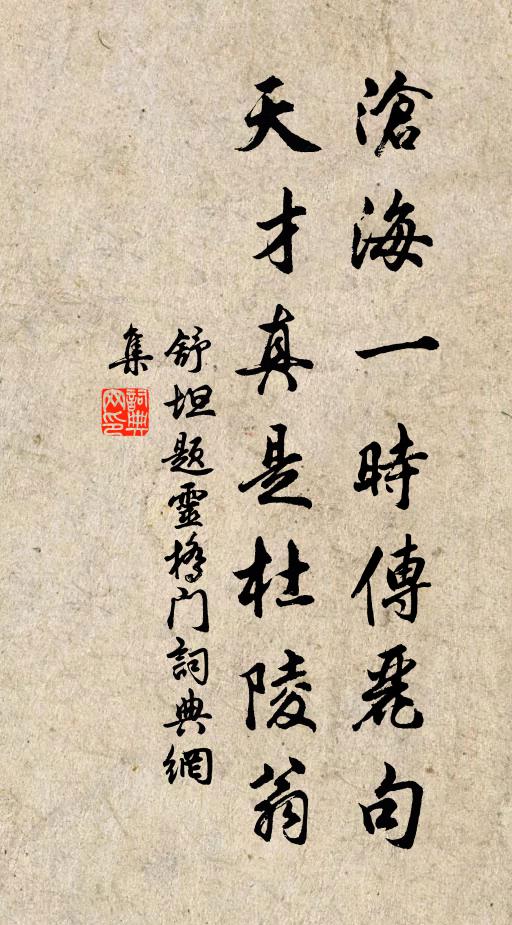 滄海一時傳麗句
天才真是杜陵翁
舒坦題靈橋门詞典網
集
詞典网印